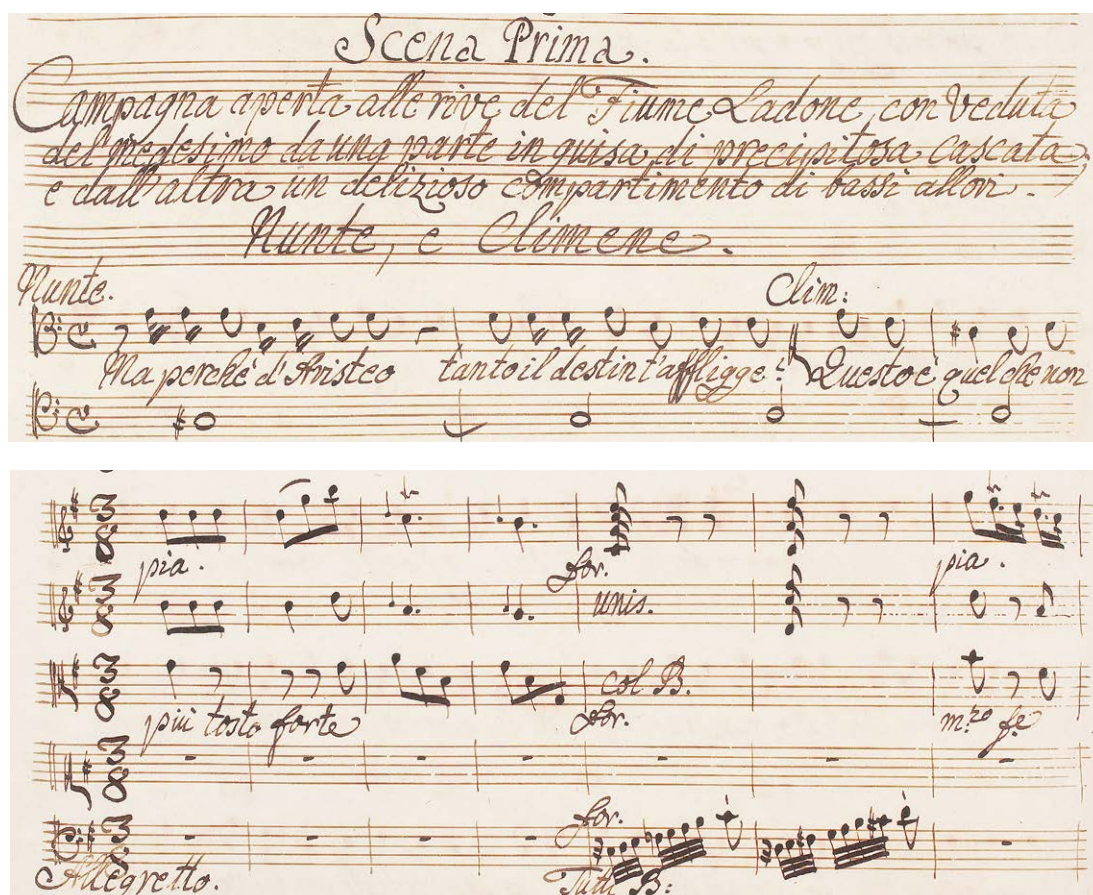 Scena Prima.
Campagna aperta alle rive del Fiume Ladone, con Veduta
del medesimo da una parte in guisa di precipitosa cascata,
e dall'altra un delizioso compartimento di bassi allori.
Nunte, e Climene.
Nunte. Clim:
Ma perchè d'Aristeo tanto il destin t'affligge? Questo è quel che non
pia. for. pia.
unis.
col B.
più tosto forte for. mzo fe
for.
Allegretto. Tutti B: